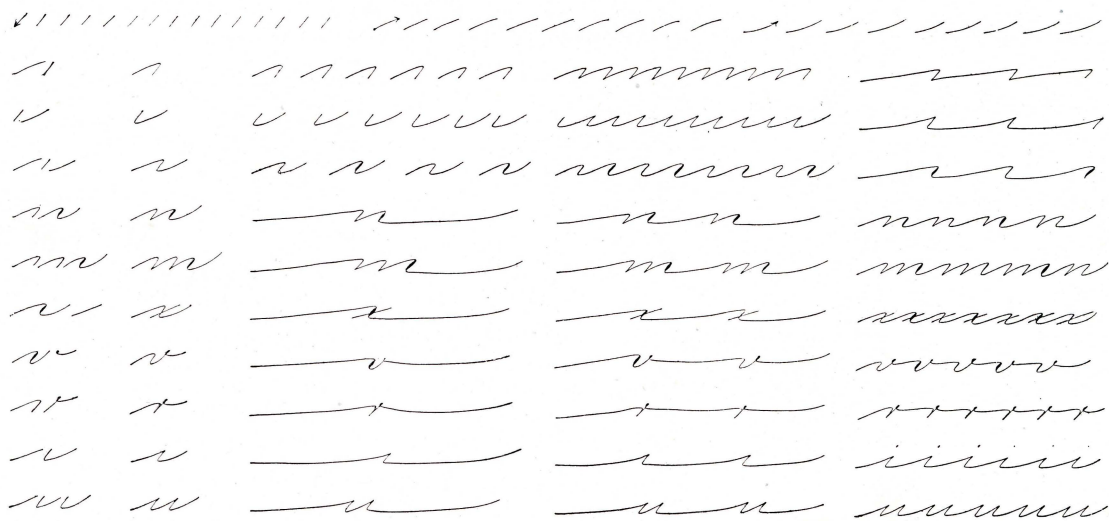 n n n n n nnnn
m m m m m mmmm
x x x x xxxxxxx
v v v v v vvvvv
r r r r r rrrrrr
i i i i i iiiii
u u u u u uuuuu